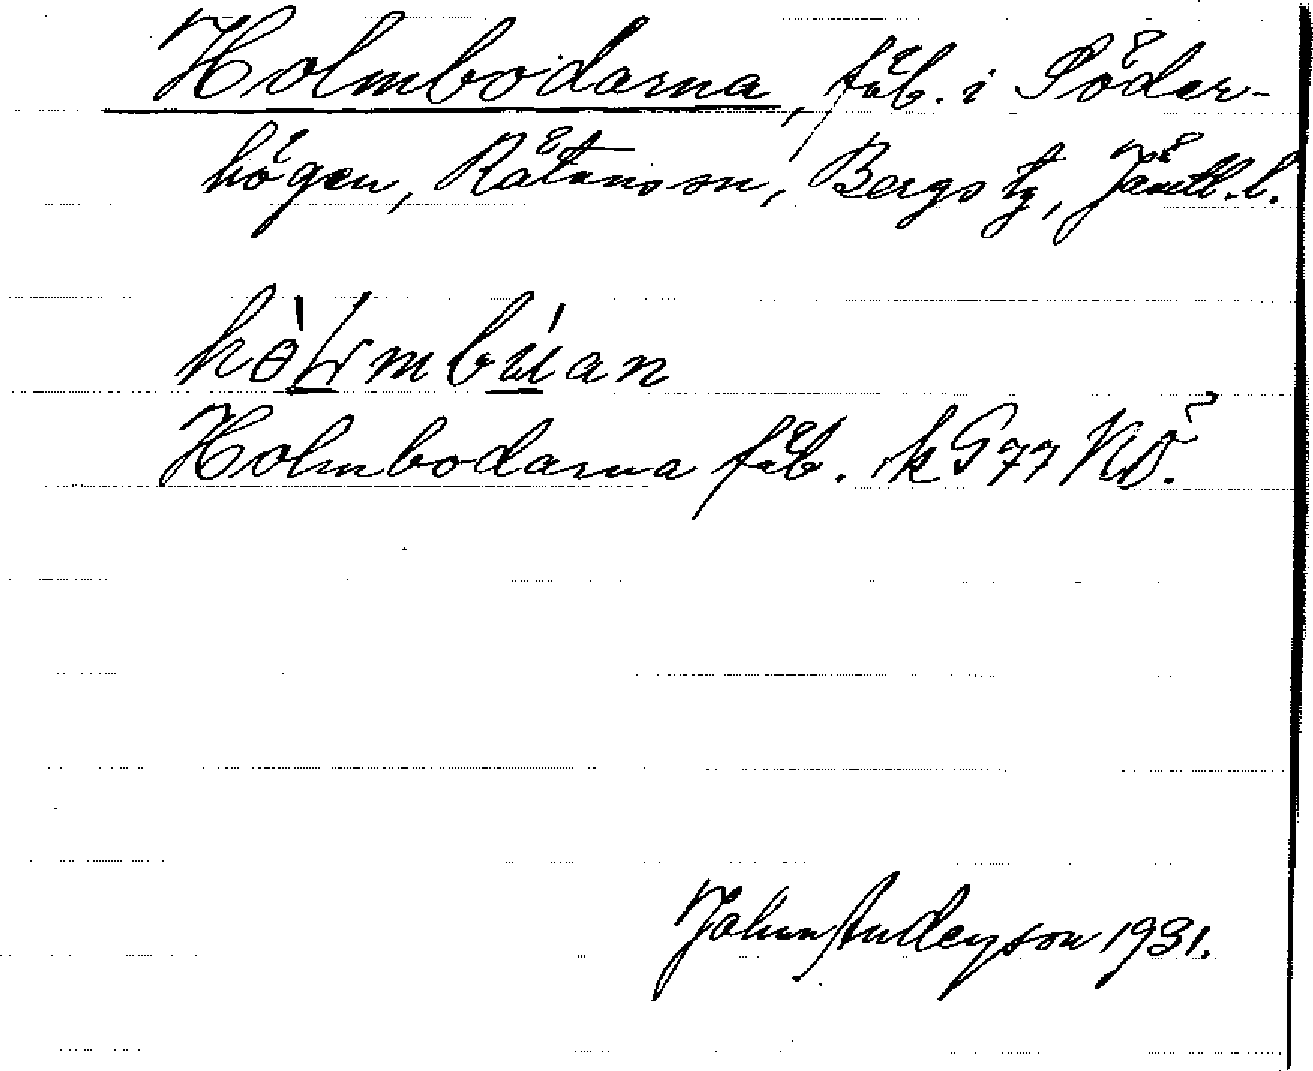 Holmbodarna, fäb. i Söder-
högen, Råtans sn, Bergs tg, Jämtl. l.
Holmbodarna fäb. k G 77 NÖ.
John Anderson 1931.